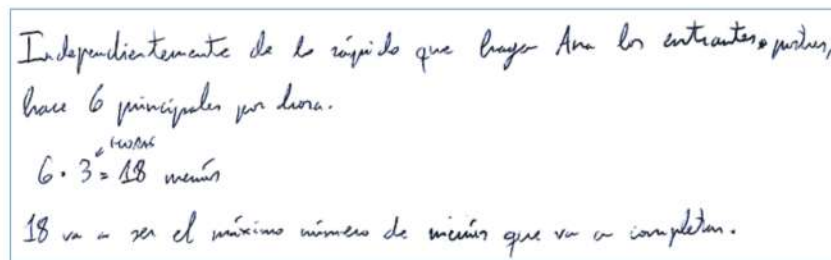 Independientemente de lo rápido que haga Ana los entrantes o postres,
hace 6 principales por hora.
HORAS
6 · 3 = 18 menús
18 va a ser el máximo número de menús que va a completar.